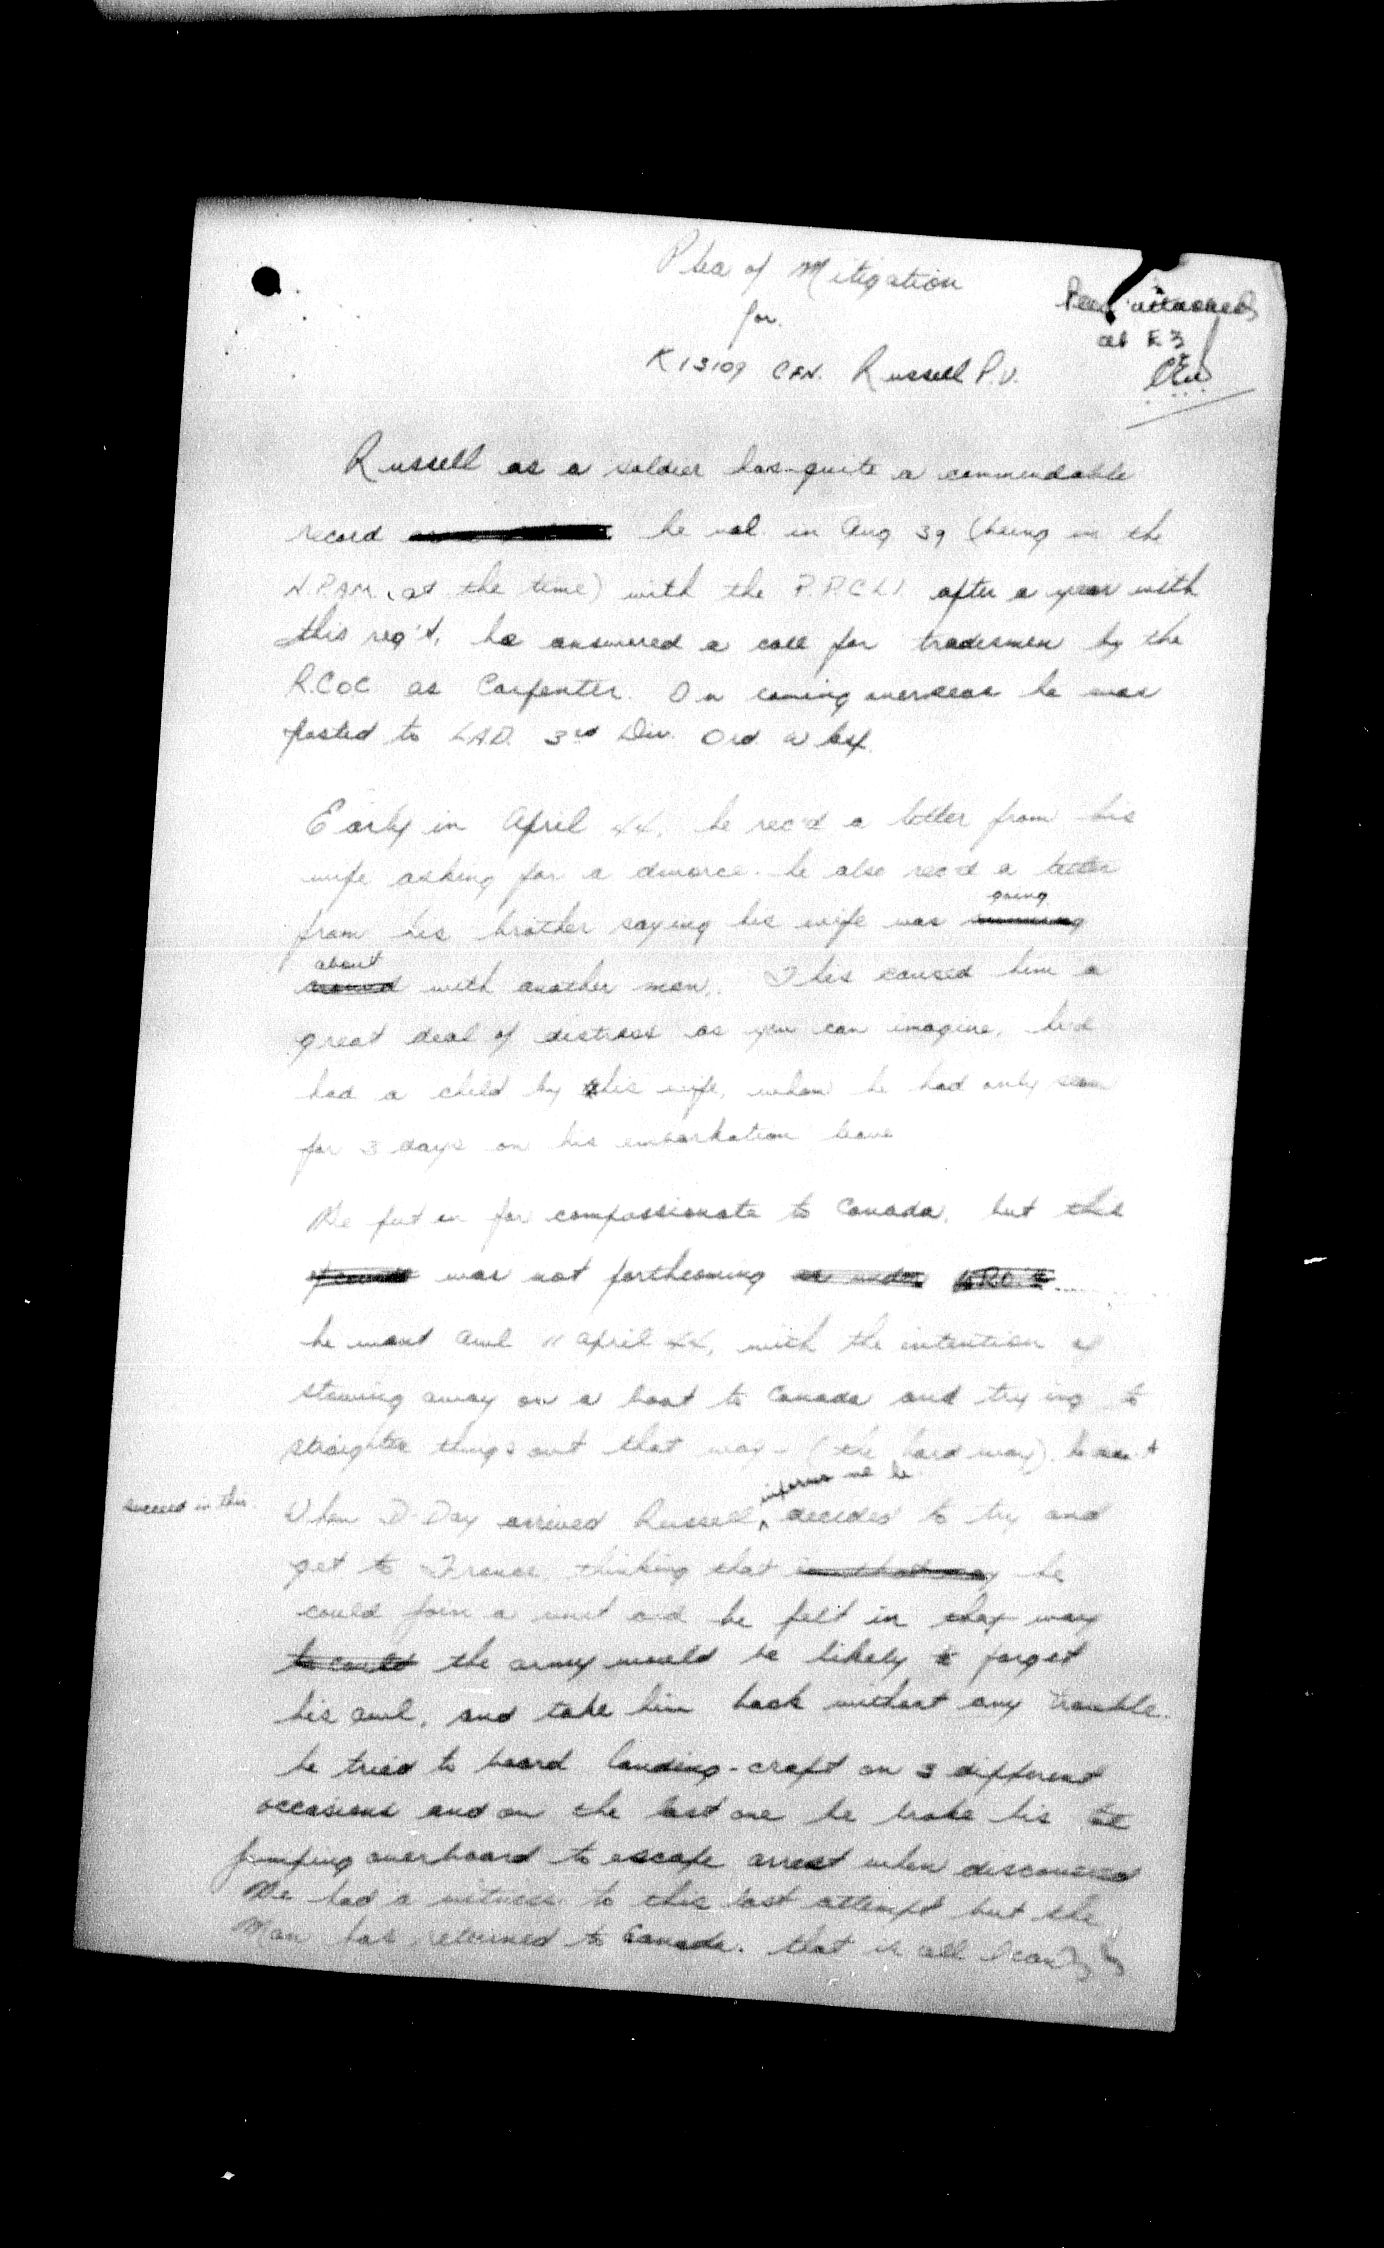 Plea of Mitigation
for.
attached
at E3
K13109 CFN. Russell P.V.
Russell as a soldier has quite a commendable
record he vol. in Aug 39 (being in the
N.P.A.M. at the time) with the P.P.C.L.I. after a year with
this reg't, he answered a call for tradesmen by the
R.C.O.C as Carpenter. On coming overseas he was
posted to L.A.D. 3rd Div. Ord. W
Early in April 44, he rec'd a letter from his
wife asking for a divorce. he also rec'd a letter
going
from his brother saying his wife was running
about
around with another man. This caused him a
great deal of distress as you can imagine, he'd
had a child by this wife, whom he had only seen
for 3 days on his embarkation leave
He put in for compassionate to Canada, but this
of course was not forthcoming as under
he went awl 11 April 44, with the intention of
stowing away on a boat to Canada and trying to
straighten things out that way - (the hard way). he
succeed in this.
informs me he
When D-Day arrived Russell, decided to try and
get to France, thinking that in that way he
could join a unit and he felt in that way
he could the army would be likely to forget
his awl, and take him back without any trouble.
he tried to board landing-craft on 3 different
occasions and on the last one he broke his
jumping overboard to escape arrest when discovered
He had a witness to this last attempt but the
Man has returned to Canada. that is all I can